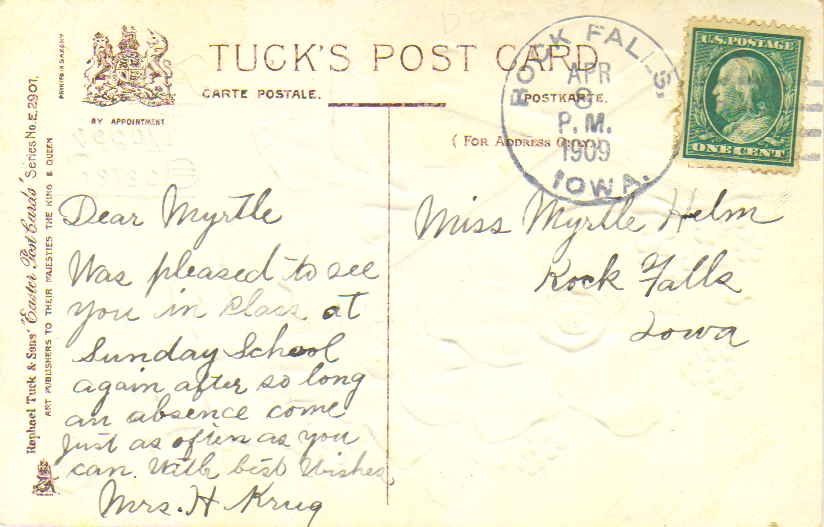 TUCK'S POST CARD
CARTE POSTALE.
POSTKARTE.
BY APPOINTMENT
PRINTED IN SAXONY
( FOR ADDRESS ONLY)
Raphael Tuck & Sons' "Easter Post Cards" Series No. E. 2901.
ART PUBLISHERS TO THEIR MAJESTIES THE KING & QUEEN
ROCK FALLS.
APR
P.M.
1909
IOWA.
U.S. POSTAGE
ONE CENT
Dear Myrtle
Was pleased to see
you in class at
Sunday School
again after so long
an absence come
just as often as you
can. With best Wishes
Mrs. H Krug
Miss Myrtle Helm
Rock Falls
Iowa